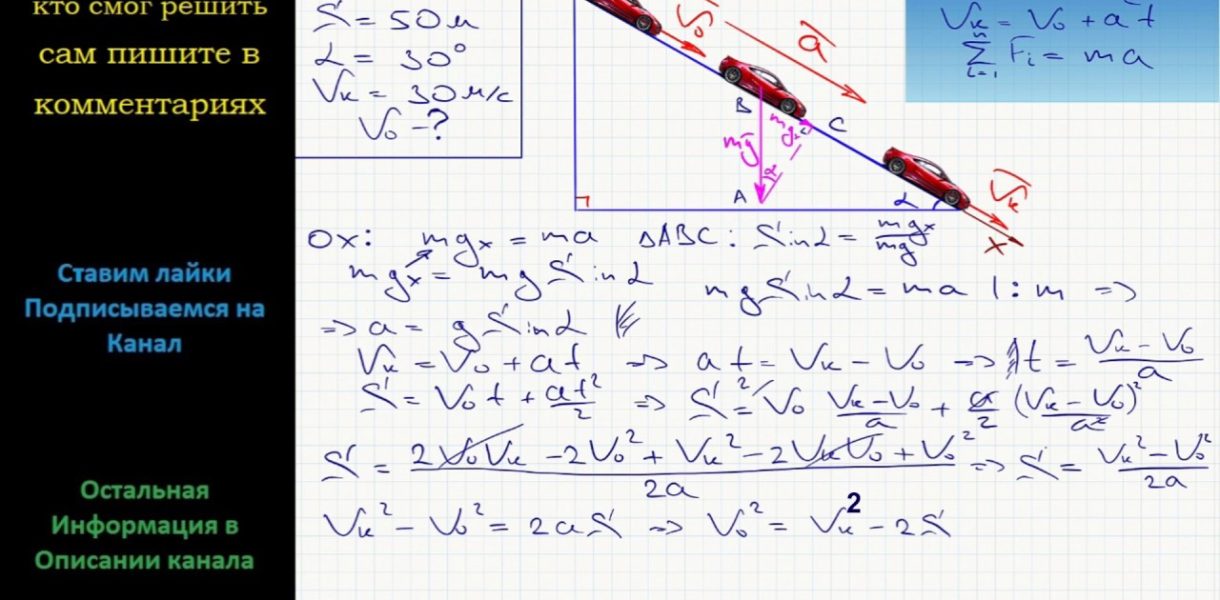 кто смог решить
сам пишите в
комментариях
Ставим лайки
Подписываемся на
Канал
Остальная
Информация в
Описании канала
S = 50 м
α = 30°
Vк = 30 м/с
V₀ - ?
V₀
a
B
C
mgₓ
mg
α
A
α
Vк
X
Vк = V₀ + at
Σⁿᵢ₌₁ Fᵢ = ma
OX: mgₓ = ma ΔABC: Sinα = mgₓ/mg
mgₓ = mg Sinα mg Sinα = ma |: m =>
=> a = g Sinα
Vк = V₀ + at => at = Vк - V₀ => t = (Vк - V₀)/a
S = V₀t + at²/2 => S = V₀ (Vк - V₀)/a + a/2 (Vк - V₀)²/a²
S = (2V₀Vк - 2V₀² + Vк² - 2VкV₀ + V₀²)/2a => S = (Vк² - V₀²)/2a
Vк² - V₀² = 2aS => V₀² = Vк² - 2S